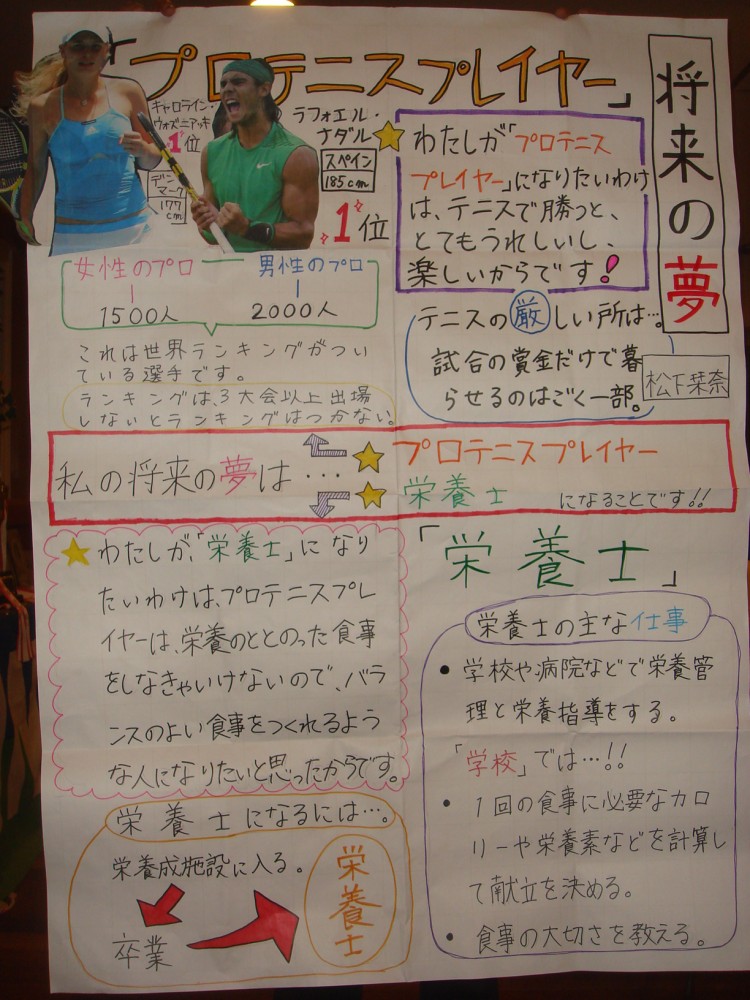 将来の夢
松下栞奈
「プロテニスプレイヤー」
キャロライン・
ウォズニアッキ
1位
デン
マーク
177
cm
ラフォエル・
ナダル
スペイン
185cm
1位
わたしが「プロテニス
プレイヤー」になりたいわけ
は、テニスで勝つと、
とてもうれしいし、
楽しいからです!
女性のプロ
1500人
男性のプロ
2000人
これは世界ランキングがつい
ている選手です。
ランキングは、3大会以上出場
しないとランキングはつかない。
テニスの厳しい所は…。
試合の賞金だけで暮
らせるのはごく一部。
私の将来の夢は…
プロテニスプレイヤー
栄養士 になることです!!
わたしが、「栄養士」になり
たいわけは、プロテニスプレ
イヤーは、栄養のととのった食事
をしなきゃいけないので、バラ
ンスのよい食事をつくれるよう
な人になりたいと思ったからです。
栄養士になるには…。
栄養成施設に入る。
卒業
栄養士
「栄養士」
栄養士の主な仕事
• 学校や病院などで栄養管
理と栄養指導をする。
「学校」では…!!
• 1回の食事に必要なカロ
リーや栄養素などを計算し
て献立を決める。
• 食事の大切さを教える。